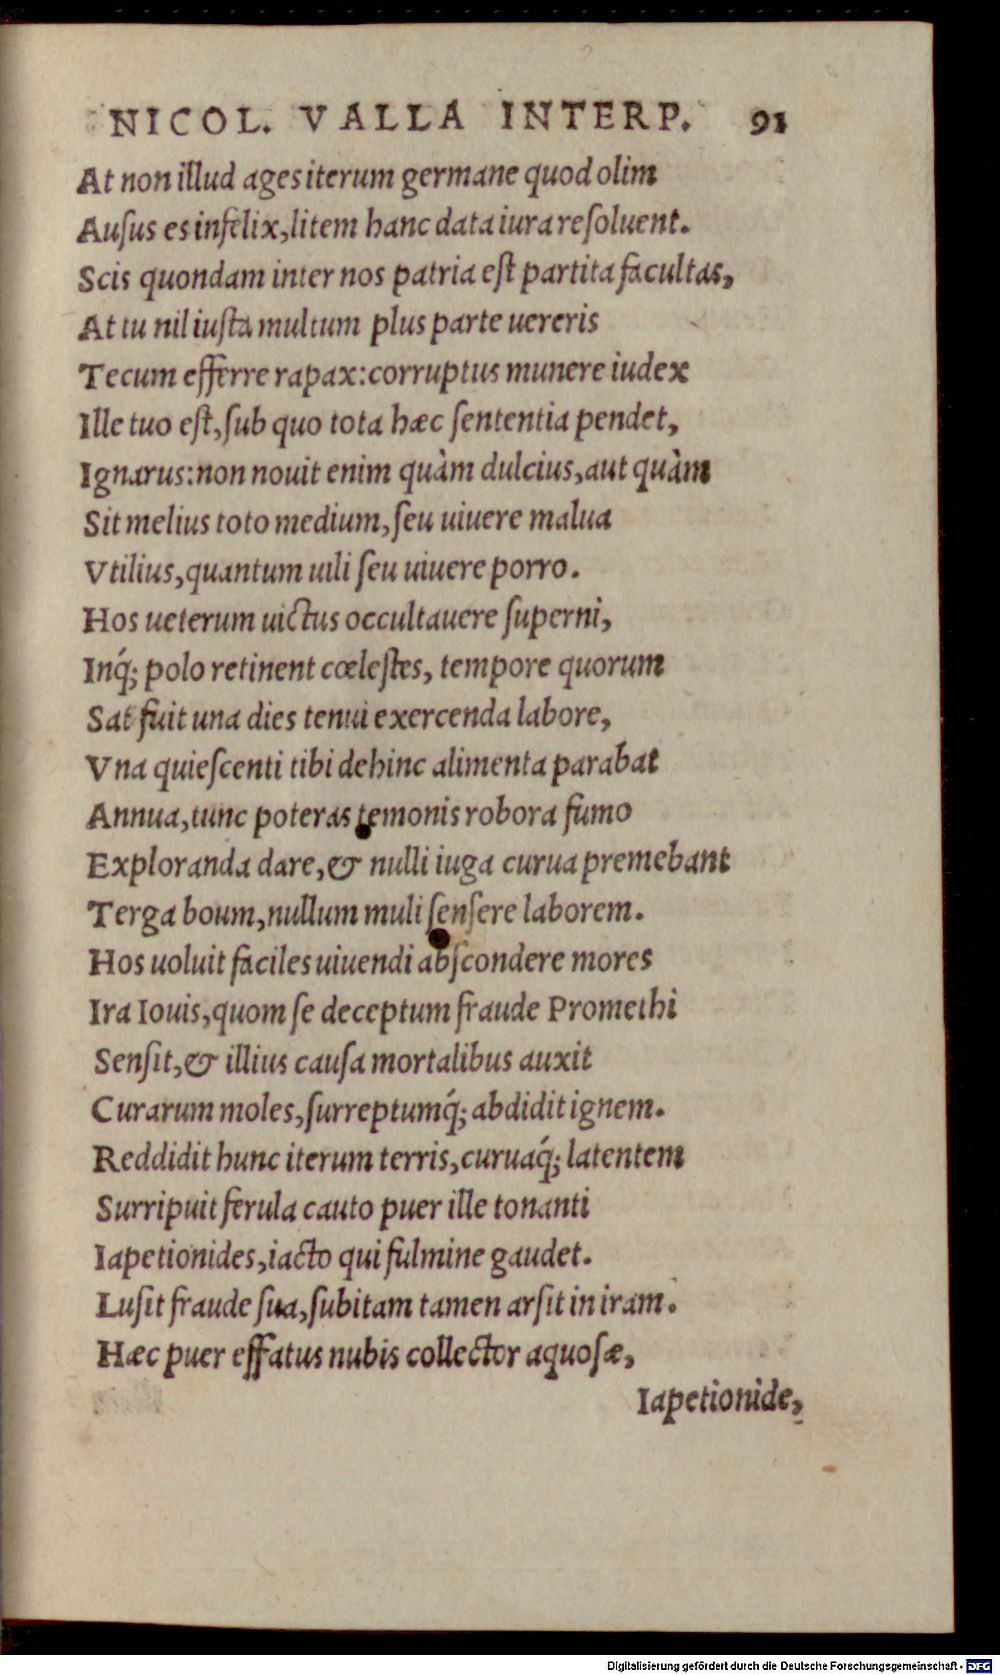 NICOL. VALLA INTERP. 91
At non illud ages iterum germane quod olim
Auſus es infelix, litem hanc data iura reſoluent.
Scis quondam inter nos patria eſt partita facultas,
At tu nil iuſta multum plus parte uereris
Tecum efferre rapax: corruptus munere iudex
Ille tuo eſt, ſub quo tota hæc ſententia pendet,
Ignarus: non nouit enim quàm dulcius, aut quàm
Sit melius toto medium, ſeu uiuere malua
Vtilius, quantum uili ſeu uiuere porro.
Hos ueterum uictus occultauere ſuperni,
Inq́; polo retinent cœleſtes, tempore quorum
Sat fuit una dies tenui exercenda labore,
Vna quieſcenti tibi dehinc alimenta parabat
Annua, tunc poteras temonis robora fumo
Exploranda dare, & nulli iuga curua premebant
Terga boum, nullum muli ſenſere laborem.
Hos uoluit faciles uiuendi abſcondere mores
Ira Iouis, quom ſe deceptum fraude Promethi
Senſit, & illius cauſa mortalibus auxit
Curarum moles, ſurreptumq́; abdidit ignem.
Reddidit hunc iterum terris, curuaq́; latentem
Surripuit ferula cauto puer ille tonanti
Iapetionides, iacto qui fulmine gaudet.
Luſit fraude ſua, ſubitam tamen arſit in iram.
Hæc puer effatus nubis collector aquoſæ,
Iapetionide,
Digitalisierung gefördert durch die Deutsche Forschungsgemeinschaft - DFG